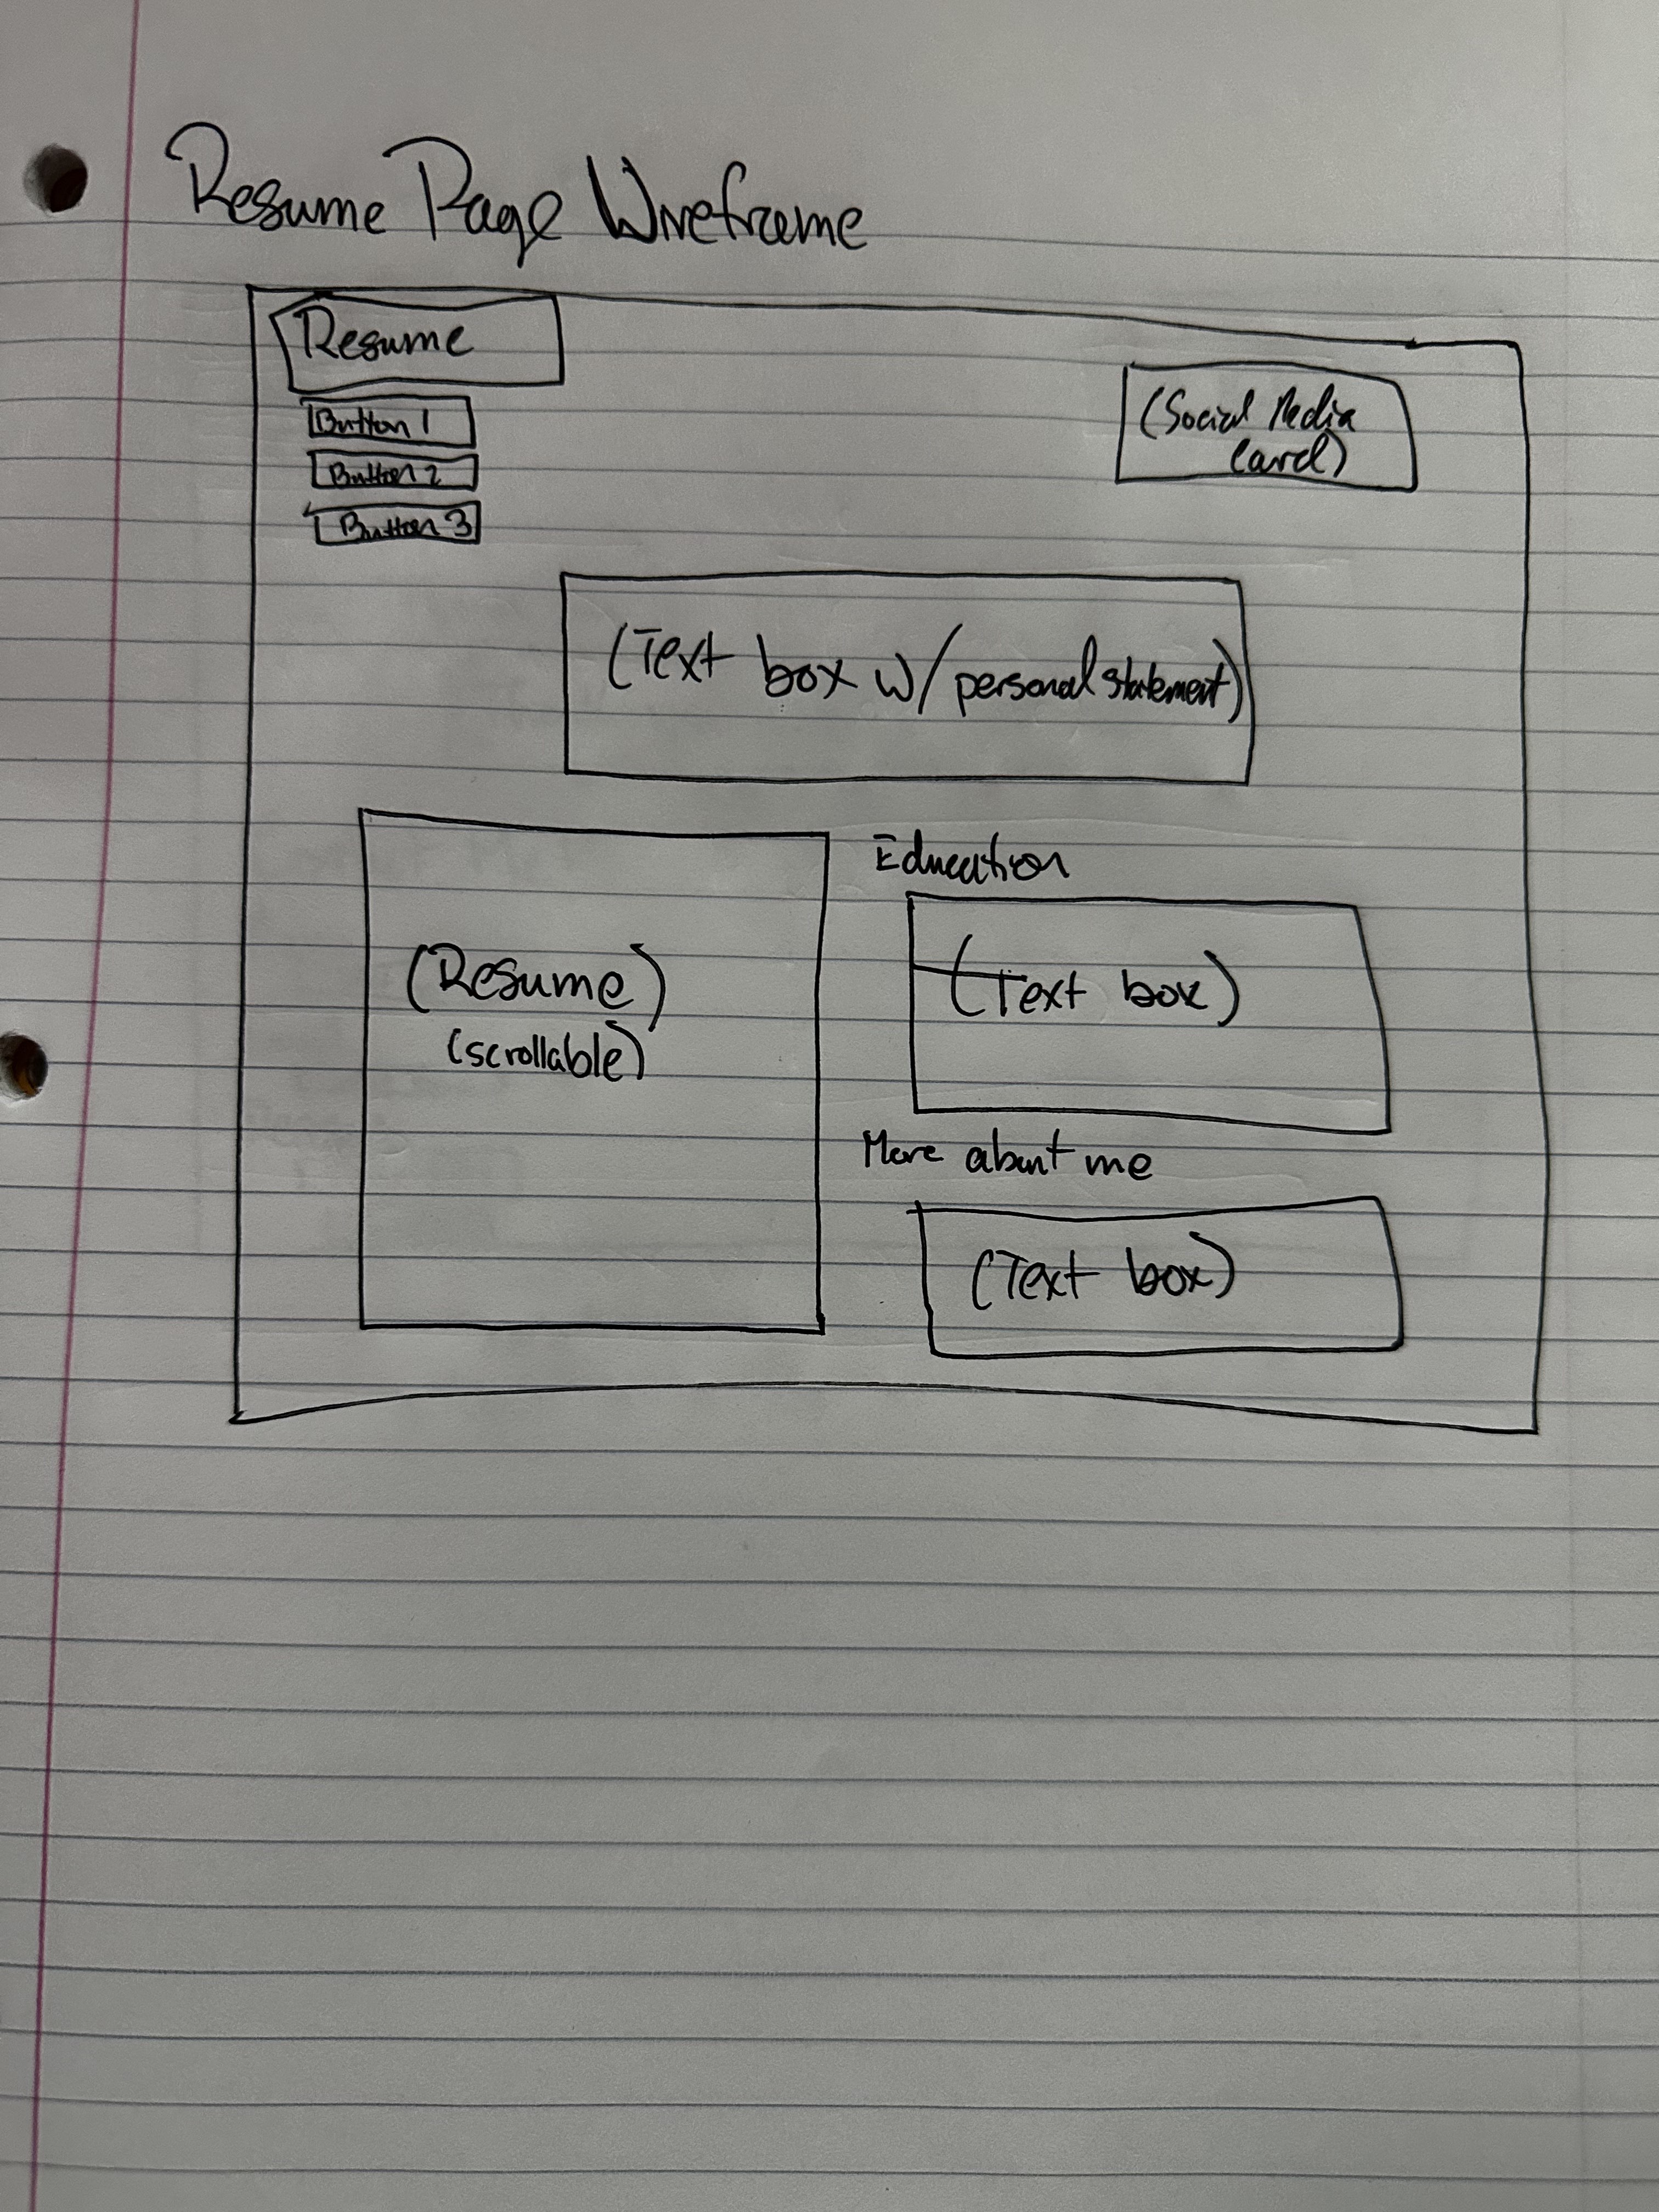 Resume Page Wireframe
Resume
Button 1
Button 2
Button 3
(Social Media
Card)
(Text box w/ personal statement)
(Resume)
(scrollable)
Education
(Text box)
More about me
(Text box)